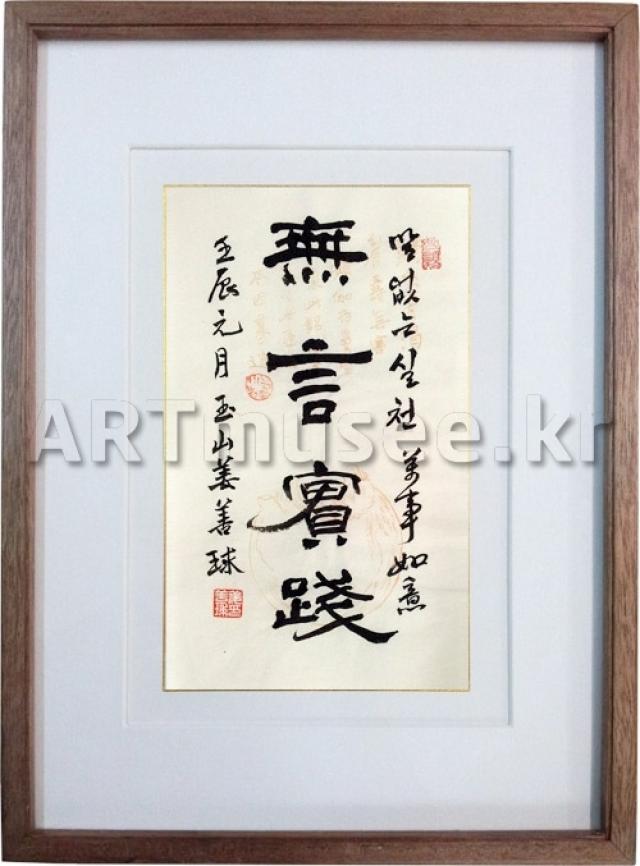 말없는실천 萬事如意
無言實踐
壬辰元月 玉山姜善球
ARTmusee.kr